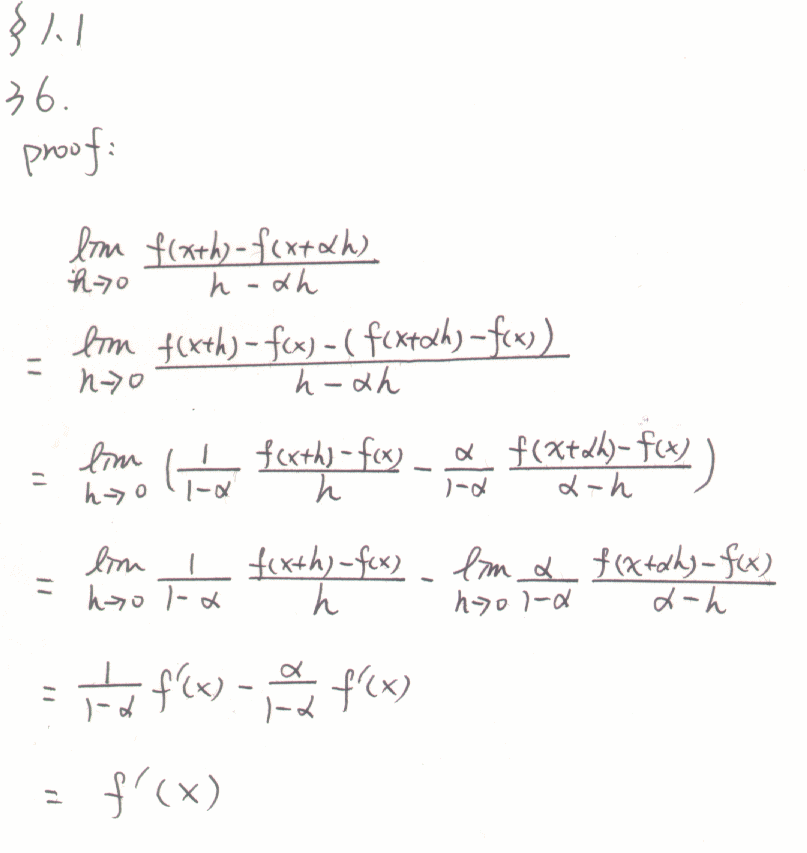 § 1.1
36.
proof:
lim_{h→0} \frac{f(x+h)-f(x+αh)}{h-αh}
= lim_{h→0} \frac{f(x+h)-f(x)-(f(x+αh)-f(x))}{h-αh}
= lim_{h→0} (\frac{1}{1-α} \frac{f(x+h)-f(x)}{h} - \frac{α}{1-α} \frac{f(x+αh)-f(x)}{α-h})
= lim_{h→0} \frac{1}{1-α} \frac{f(x+h)-f(x)}{h} - lim_{h→0} \frac{α}{1-α} \frac{f(x+αh)-f(x)}{α-h}
= \frac{1}{1-α} f'(x) - \frac{α}{1-α} f'(x)
= f'(x)